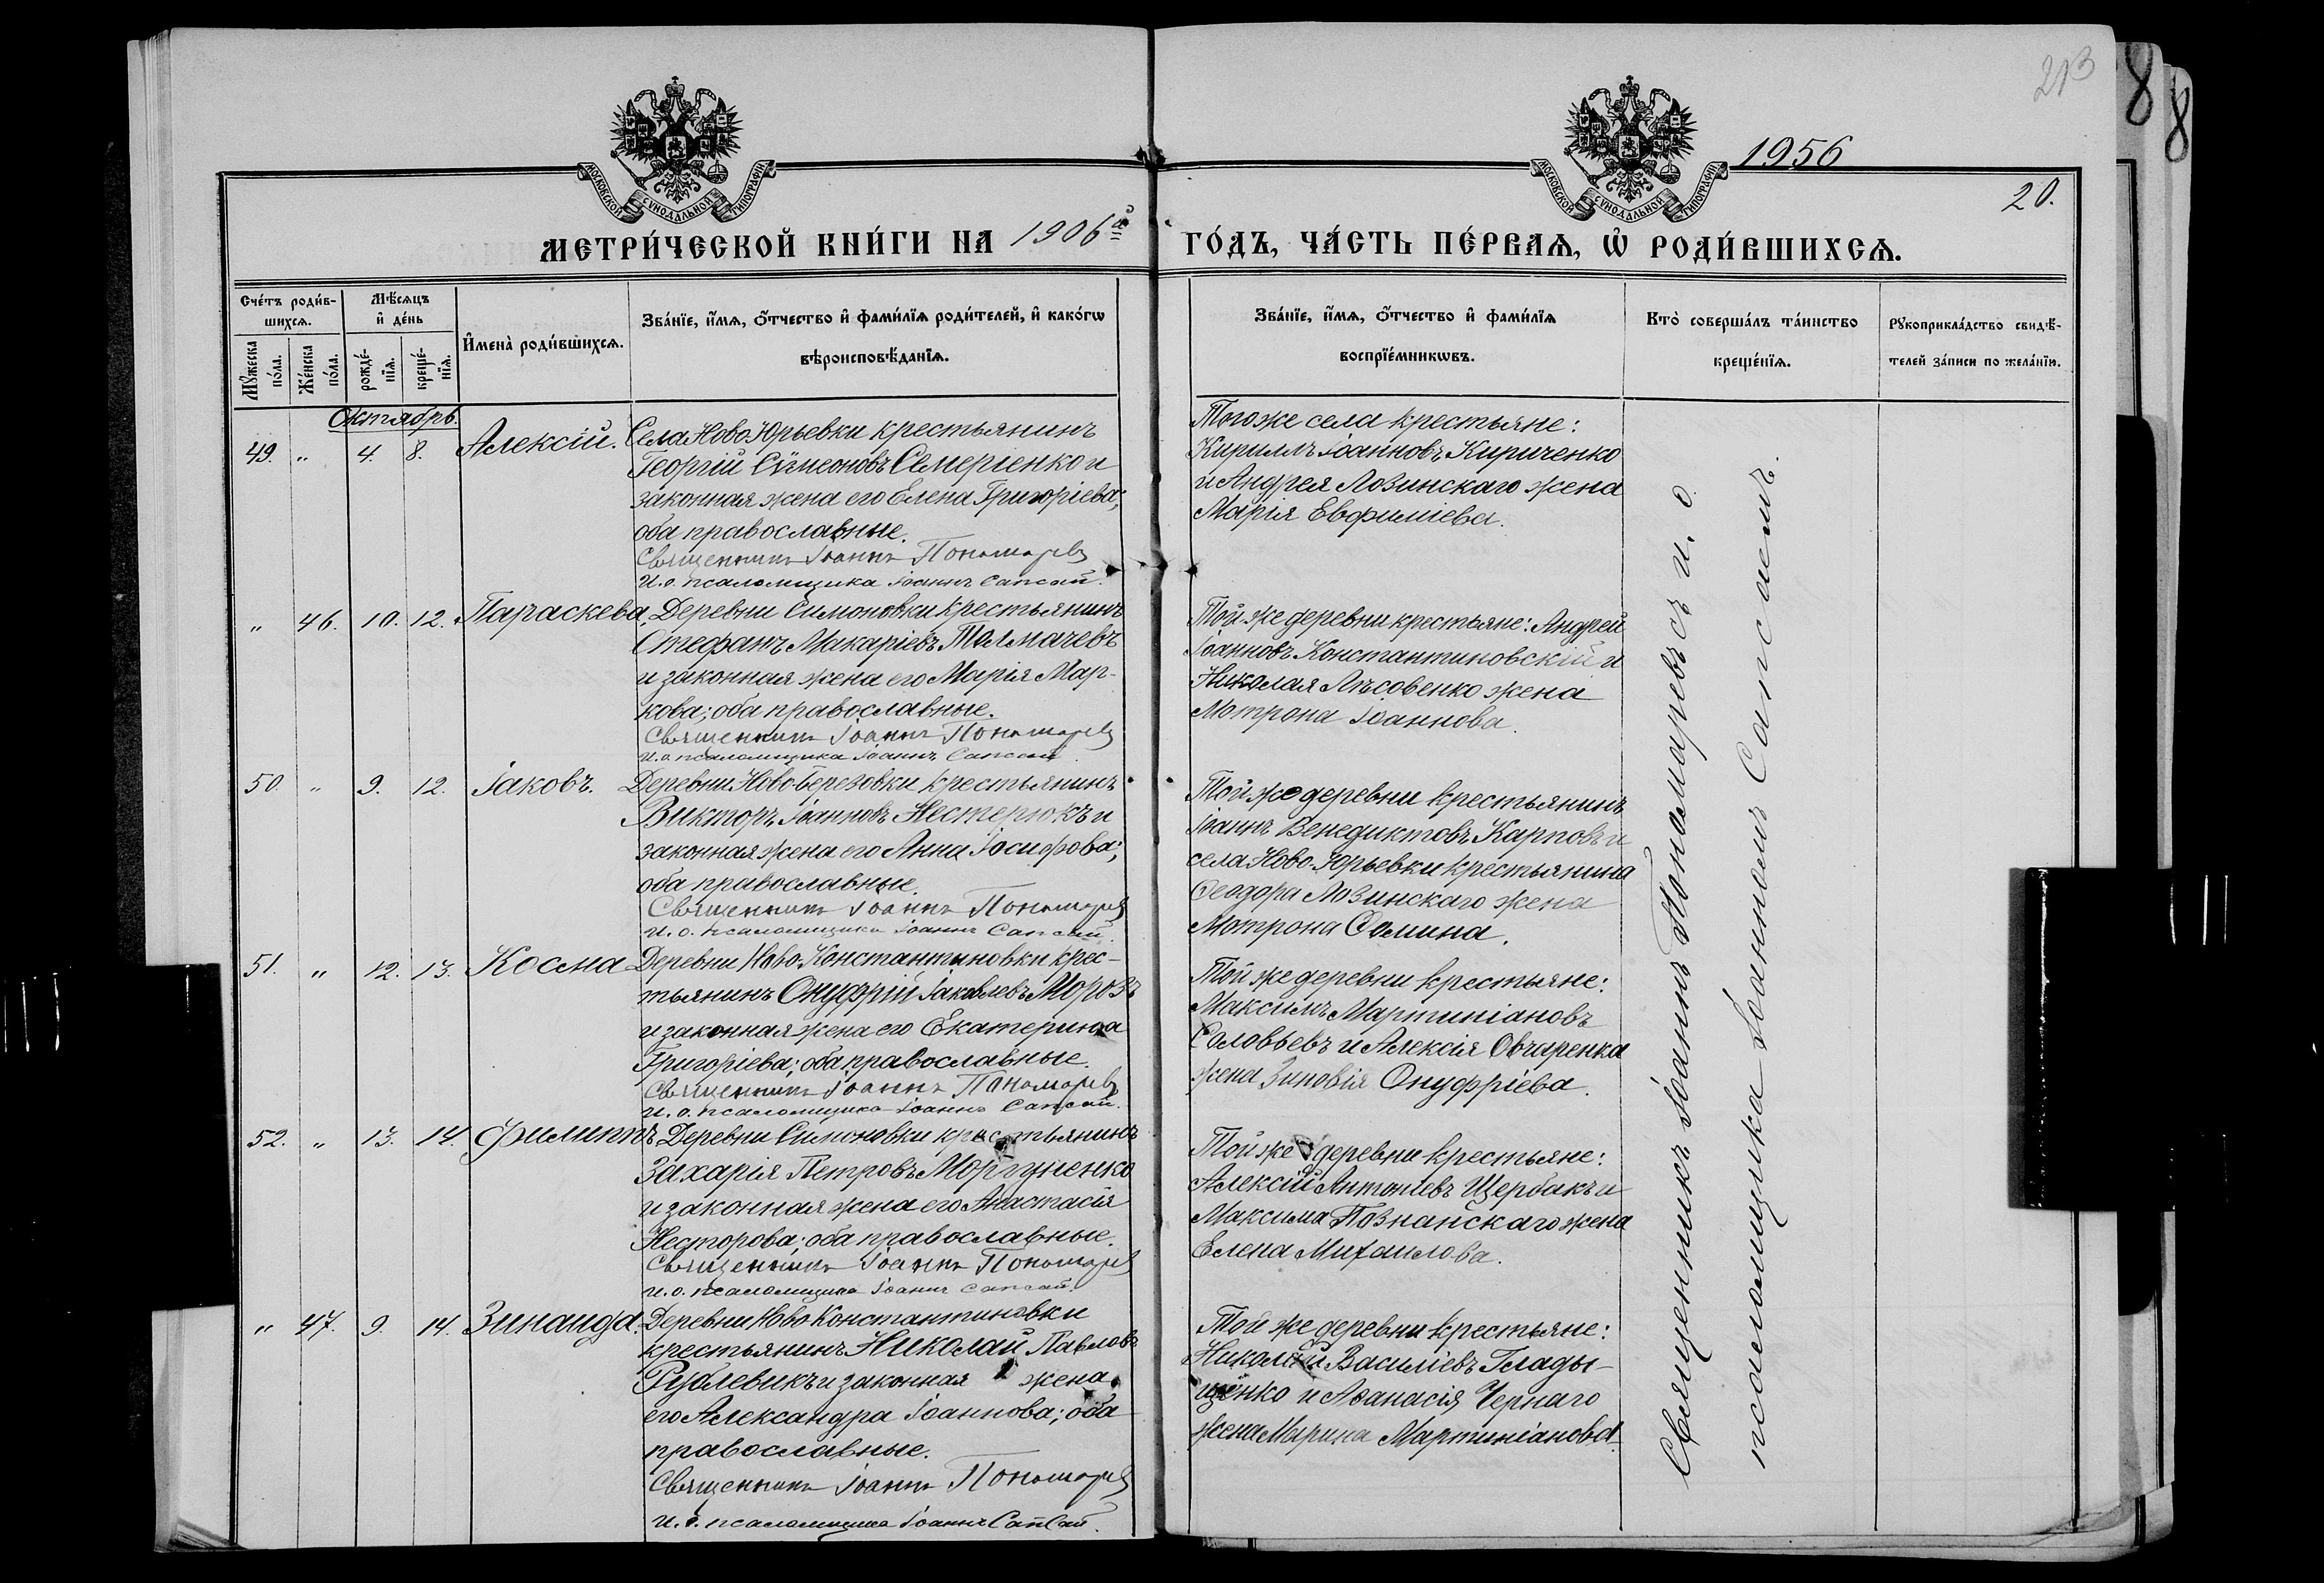 213
8
8
МОСКОВСКОЙ СѴНОДАЛЬНОЙ ТИПОГРАФІИ
МОСКОВСКОЙ СѴНОДАЛЬНОЙ ТИПОГРАФІИ
1956
20.
МЕТРИ́ЧЕСКОЙ КНИ́ГИ НА 1906й ГО́ДЪ, ЧА́СТЬ ПЕ́РВАѦ, Ѡ҆ РОДИ́ВШИХСѦ.
Сче́тъ роди́в-
шихсѧ.
Мꙋ́жеска по́ла.
Же́нска по́ла.
Мѣ́сѧцъ
и҆ де́нь
рожде́-
нїѧ.
креще́-
нїѧ.
И҆мена̀ роди́вшихсѧ.
Зва́нїе, и҆́мѧ, ѻ҆́тчество и҆ фами́лїѧ роди́телей, и҆ како́гѡ
вѣроисповѣ́данїѧ.
Зва́нїе, и҆́мѧ, ѻ҆́тчество и҆ фами́лїѧ
воспрїе́мникѡвъ.
Кто̀ соверша́лъ та́инство
креще́нїѧ.
Рꙋкоприкла́дство свидѣ́-
телей за́писи по жела́нїю.
Октябрь.
49. " 4. 8. Алексій. Села Ново Юрьевки крестьянинъ
Георгій Сѵмеоновъ Семеріенко и
законная жена его Елена Григоріева;
оба православные.
Священникъ Іоаннъ Пономаревъ
И.о. псаломщика Іоаннъ Сапсай.
Того же села крестьяне:
Кириллъ Іоанновъ Кириченко
и Андрея Лозинскаго жена
Марія Евфиміева.
" 46. 10. 12. Параскева. Деревни Симоновки крестьянинъ
Стефанъ Макаріевъ Толмачевъ
и законная жена его Марія Мар-
кова; оба православные.
Священникъ Іоаннъ Пономаревъ
И.о. псаломщика Іоаннъ Сапсай
Той же деревни крестьяне: Андрей
Іоанновъ Константиновскій и
Николая Лѣсовенко жена
Мотрона Іоаннова.
50. " 9. 12. Іаковъ. Деревни Ново-Березовки крестьянинъ
Викторъ Іоанновъ Нестерюкъ и
законная жена его Анна Іосифова;
оба православные.
Священникъ Іоаннъ Пономаревъ
И.о. псаломщика Іоаннъ Сапсай.
Той же деревни крестьянинъ
Іоаннъ Венедиктовъ Карповъ и
села Ново-Юрьевки крестьянина
Ѳеодора Лозинскаго жена
Мотрона Сомина.
51. " 12. 13. Косма Деревни Ново-Константиновки крес-
тьянинъ Онуфрій Іаковлевъ Морозъ
и законная жена его Екатерина
Григоріева; оба православные.
Священникъ Іоаннъ Пономаревъ
И.о. псаломщика Іоаннъ Сапсай.
Той же деревни крестьяне:
Максимъ Мартиніановъ
Соловьевъ и Алексія Овчаренка
жена Зиновія Онуфріева.
52. " 13. 14. Филиппъ Деревни Симоновки крестьянинъ
Захарія Петровъ Моргуненко
и законная жена его Анастасія
Несторова; оба православные.
Священникъ Іоаннъ Пономаревъ
И.о. псаломщика Іоаннъ Сапсай.
Той же деревни крестьяне:
Алексій Антоніевъ Щербакъ и
Максима Познанскаго жена
Елена Михаилова.
" 47. 9. 14. Зинаида. Деревни Ново Константиновки
крестьянинъ Николай Павловъ
Рублевикъ и законная жена
его Александра Іоаннова; оба
православные.
Священникъ Іоаннъ Пономаревъ
И.о. псаломщика Іоаннъ Сапсай.
Той же деревни крестьяне:
Николай Василіевъ Глады-
щенко и Аѳанасія Чернаго
жена Марина Мартиніанова.
Священникъ Іоаннъ Пономаревъ съ и. о.
псаломщика Іоанномъ Сапсаемъ.